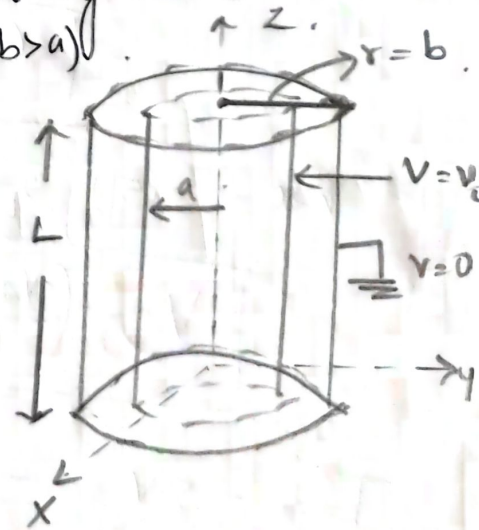 b>a)
Z.
r=b.
a
V=V₀
L
V=0
y
X